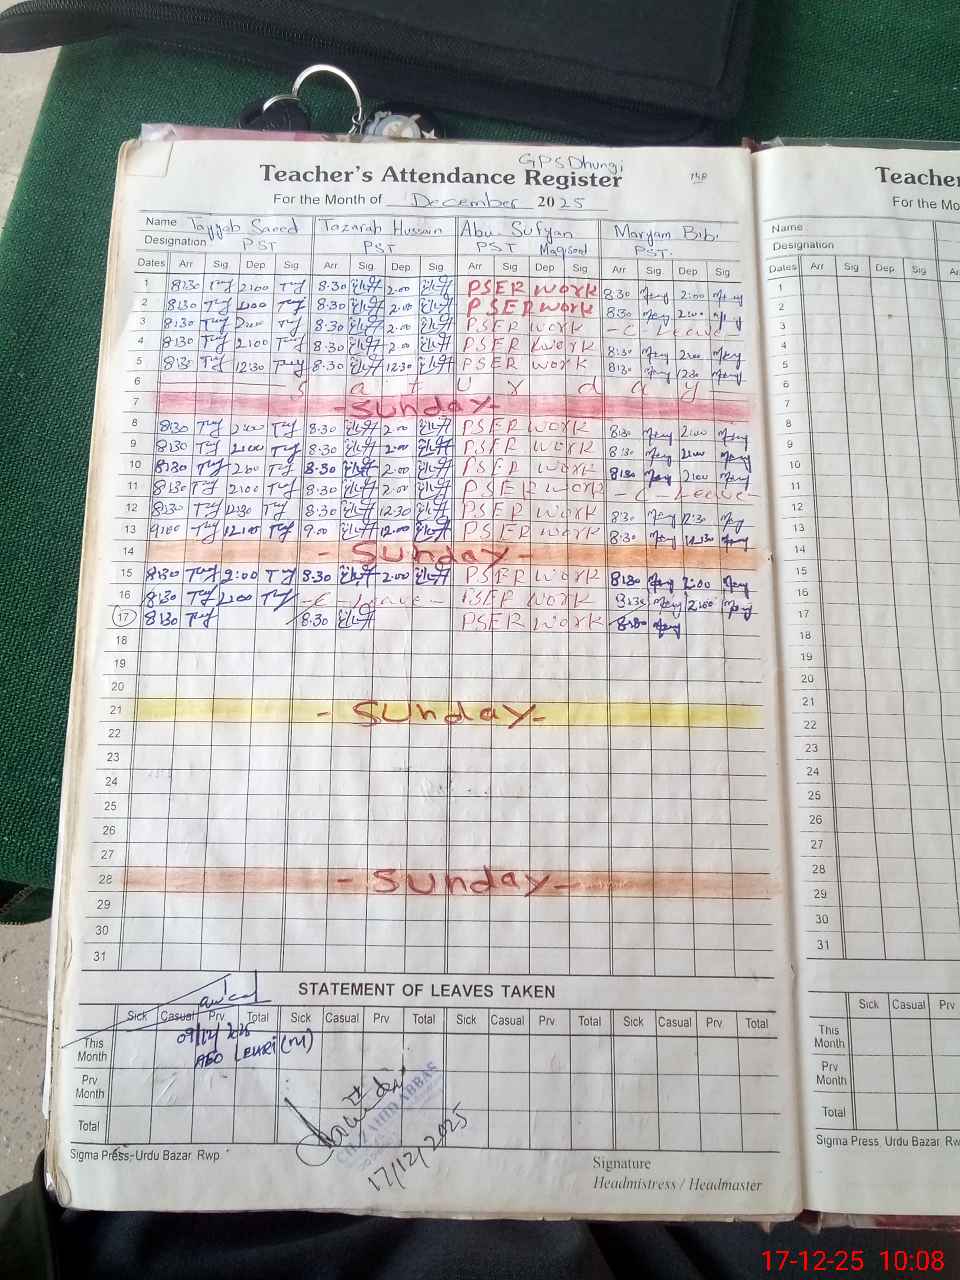 GPS Dhungi
Teacher's Attendance Register
For the Month of December 2025
Name Tayyab Saeed Tazarab Hussain Abu Sufyan Maryam Bibi
Designation PST PST PST PST
Dates Arr Sig Dep Sig Arr Sig Dep Sig Arr Sig Dep Sig Arr Sig Dep Sig
1 8:30 2:00 8:30 2:00 PSER work 8:30 2:00
2 8:30 2:00 8:30 2:00 PSER work 8:30 2:00
3 8:30 2:00 8:30 2:00 PSER work - C - Leave -
4 8:30 2:00 8:30 2:00 PSER work 8:30 2:00
5 8:30 12:30 8:30 12:30 PSER work 8:30 12:30
6 S a t u r d a y
7 - Sunday -
8 8:30 2:00 8:30 2:00 PSER work 8:30 2:00
9 8:30 2:00 8:30 2:00 PSER work 8:30 2:00
10 8:30 2:00 8:30 2:00 PSER work 8:30 2:00
11 8:30 2:00 8:30 2:00 PSER work - C - Leave -
12 8:30 12:30 8:30 12:30 PSER work 8:30 12:30
13 9:00 12:00 9:00 12:00 PSER work 8:30 12:30
14 - Sunday -
15 8:30 2:00 8:30 2:00 PSER work 8:30 2:00
16 8:30 2:00 - C - Leave - PSER work 8:30 2:00
17 8:30 8:30 PSER work 8:30
18
19
20
21 - Sunday -
22
23
24
25
26
27
28 - Sunday -
29
30
31
STATEMENT OF LEAVES TAKEN
Sick Casual Prv Total Sick Casual Prv Total Sick Casual Prv Total Sick Casual Prv Total
This Month
09/12/2025
AEO Lehri (M)
Prv Month
Total
CH. ZAHID ABBAS
17/12/2025
Sigma Press, Urdu Bazar, Rwp.
Signature
Headmistress / Headmaster
Teacher
For the Mo
Name
Designation
Dates Arr Sig Dep Sig
1
2
3
4
5
6
7
8
9
10
11
12
13
14
15
16
17
18
19
20
21
22
23
24
25
26
27
28
29
30
31
Sick Casual Prv
This Month
Prv Month
Total
Sigma Press, Urdu Bazar, Rw
17-12-25 10:08